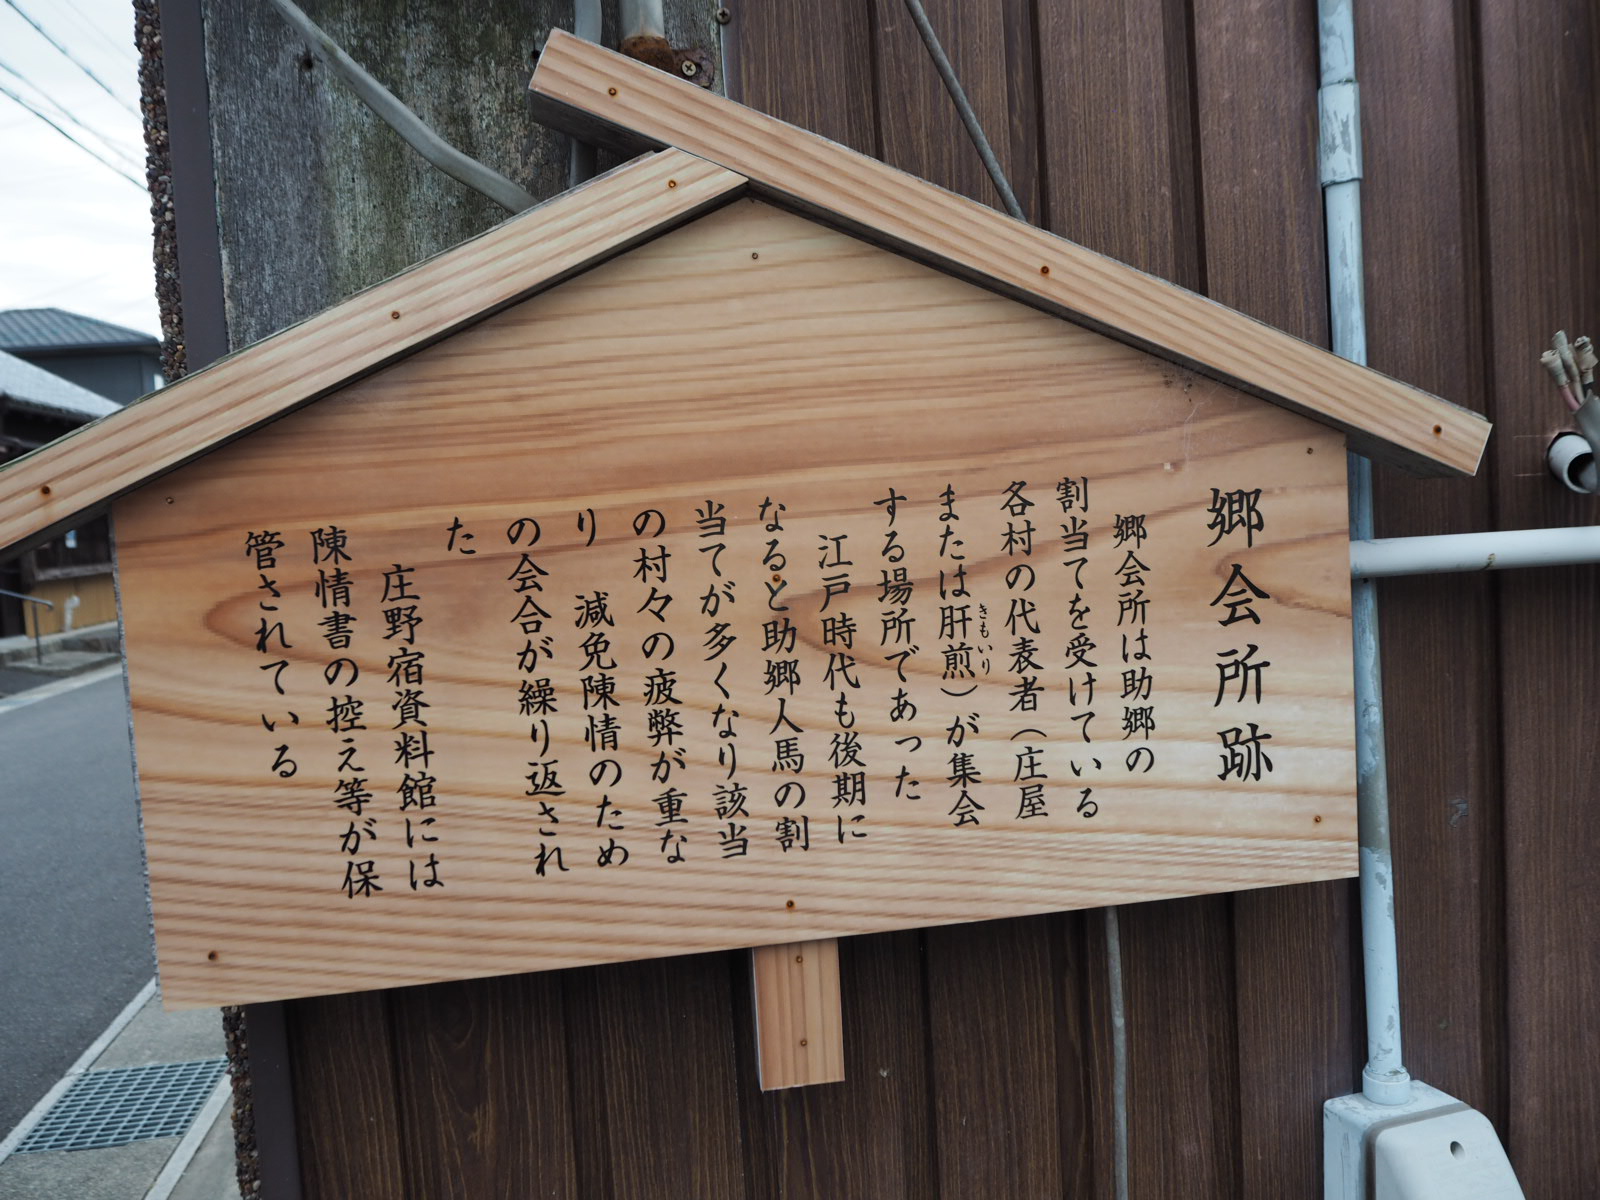 郷会所跡
郷会所は助郷の
割当てを受けている
各村の代表者（庄屋
または肝煎）が集会
きもいり
する場所であった
江戸時代も後期に
なると助郷人馬の割
当てが多くなり該当
の村々の疲弊が重な
り　減免陳情のため
の会合が繰り返され
た
庄野宿資料館には
陳情書の控え等が保
管されている